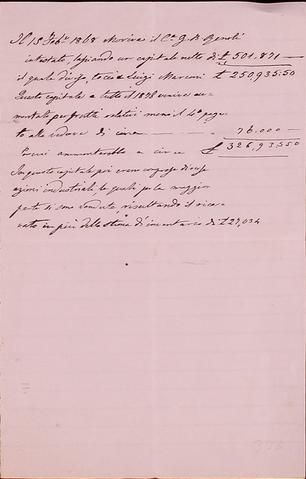 Il 15 Febº 1868 Moriva il Cº G. B.
intestato, lasciando un capitale netto di £ 501,871 —
il quale diviso, tocca a Luigi Marconi £ 250,935.50
Questo capitale a tutto il 1878 veniva au-
mentato pei frutti relativi meno il 4º paga-
to alla vedova di circa — 76,000 —
Perciò ammonterebbe a circa £ 326,935.50
In questo capitale poi erano comprese diverse
azioni industriali le quali per la maggior
parte si sono vendute, risultando il rica-
vato in più della stima d'inventario di £ 27,034